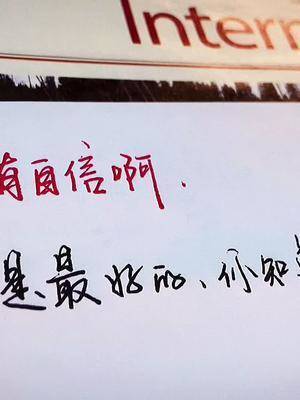 Intern
有自信啊.
是最好的、你知